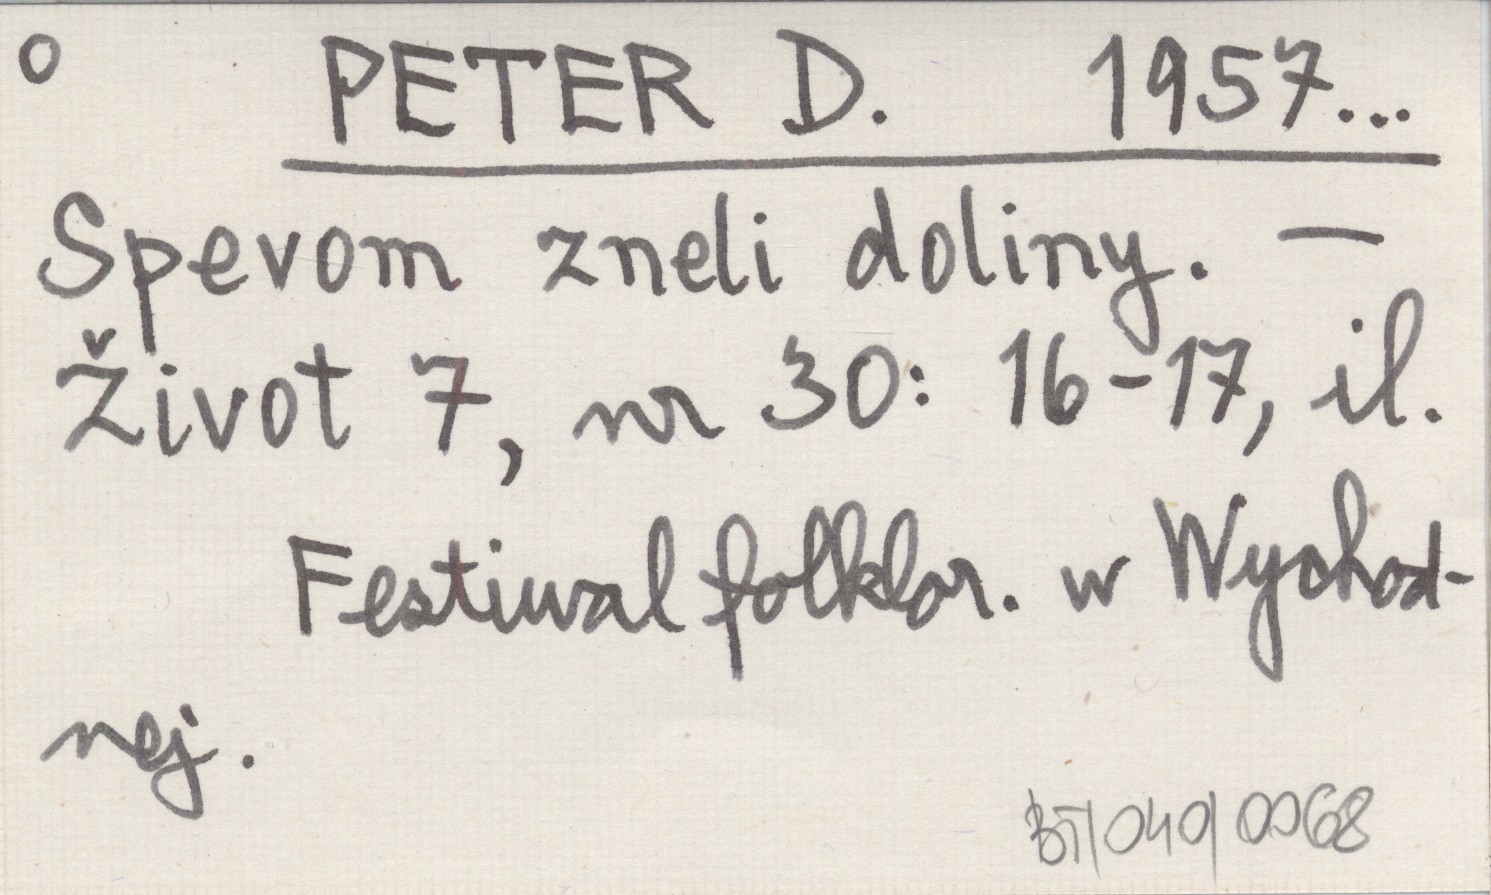 o PETER D. 1957...
Spevom zneli doliny. —
Život 7, nr 30: 16-17, il.
Festiwal folklor. w Wychod-
nej.
BT/040/0068